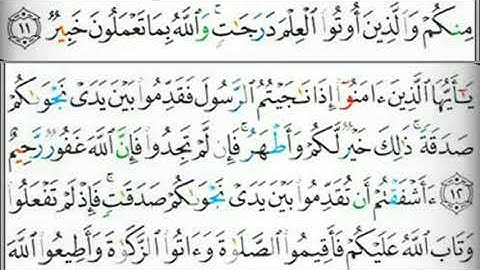 مِنكُمْ وَالَّذِينَ أُوتُوا۟ الْعِلْمَ دَرَجَٰتٍ ۚ وَاللَّهُ بِمَا تَعْمَلُونَ خَبِيرٌ ١١
يَٰٓأَيُّهَا الَّذِينَ ءَامَنُوٓا۟ إِذَا نَٰجَيْتُمُ الرَّسُولَ فَقَدِّمُوا۟ بَيْنَ يَدَىْ نَجْوَىٰكُمْ
صَدَقَةً ۚ ذَٰلِكَ خَيْرٌ لَّكُمْ وَأَطْهَرُ ۚ فَإِن لَّمْ تَجِدُوا۟ فَإِنَّ اللَّهَ غَفُورٌ رَّحِيمٌ
١٢ ءَأَشْفَقْتُمْ أَن تُقَدِّمُوا۟ بَيْنَ يَدَىْ نَجْوَىٰكُمْ صَدَقَٰتٍ ۚ فَإِذْ لَمْ تَفْعَلُوا۟
وَتَابَ اللَّهُ عَلَيْكُمْ فَأَقِيمُوا۟ الصَّلَوٰةَ وَءَاتُوا۟ الزَّكَوٰةَ وَأَطِيعُوا۟ اللَّهَ